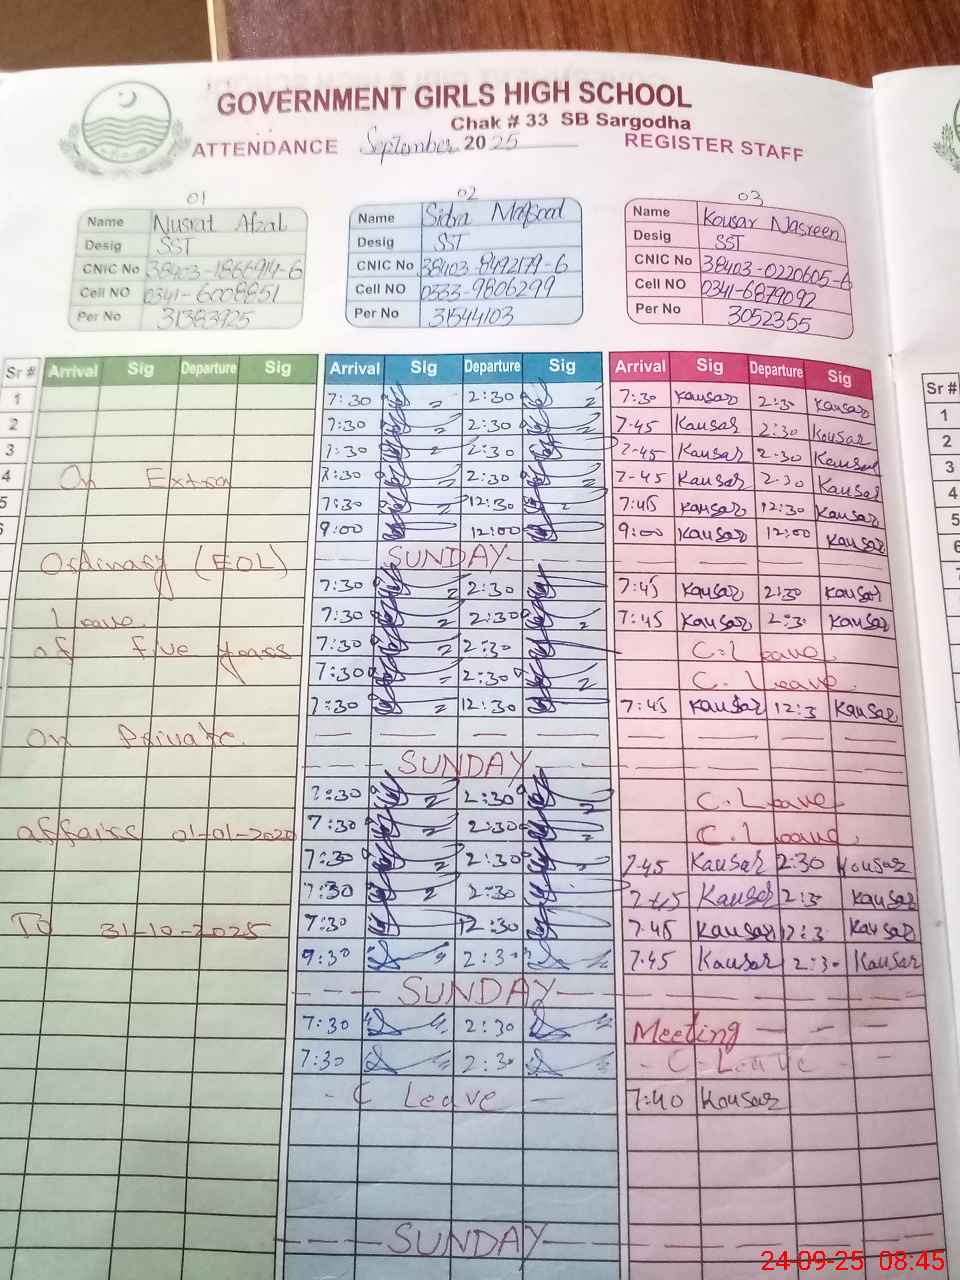 GOVERNMENT GIRLS HIGH SCHOOL
Chak # 33 SB Sargodha
ATTENDANCE September 2025 REGISTER STAFF
01 02 03
Name Nusrat Afzal Name Sidra Maqsood Name Kousar Nasreen
Desig SST Desig SST Desig SST
CNIC No 38403-1866914-6 CNIC No 38403-8492179-6 CNIC No 38403-0220605-6
Cell NO 0341-6008851 Cell NO 0333-9806299 Cell NO 0341-6879092
Per No 31383925 Per No 31544103 Per No 3052355
Sr # Arrival Sig Departure Sig Arrival Sig Departure Sig Arrival Sig Departure Sig Sr #
1 7:30 2:30 7:30 Kausar 2:30 Kausar 1
2 7:30 2:30 7-45 Kausar 2:30 Kausar 2
3 7:30 2:30 7-45 Kausar 2:30 Kausar 3
4 On Extra 7:30 2:30 7-45 Kausar 2:30 Kausar 4
5 7:30 12:30 7:45 Kausar 12:30 Kausar 5
6 9:00 12:00 9:00 Kausar 12:00 Kausar 6
Ordinary (EOL) SUNDAY
7:30 2:30 7:45 Kausar 2:30 Kausar
Leave 7:30 2:30 7:45 Kausar 2:3 Kausar
of five years 7:30 2:30 C. Leave
7:30 2:30 C. Leave
7:30 12:30 7:45 Kausar 12:3 Kausar
On Private
SUNDAY
7:30 2:30 C. Leave
affairs 01-01-2020 7:30 2:30 C. Leave
7:30 2:30 7-45 Kausar 2:30 Kausar
7:30 2:30 7-45 Kausar 2:3 Kausar
To 31-10-2025 7:30 12:30 7.45 Kausar 12:3 Kausar
2:30 7.45 Kausar 2:30 Kausar
SUNDAY
7:30 2:30 Meeting
7:30 2:30 C-Leave
C Leave 7:40 Kausar
SUNDAY
24-09-25 08:45